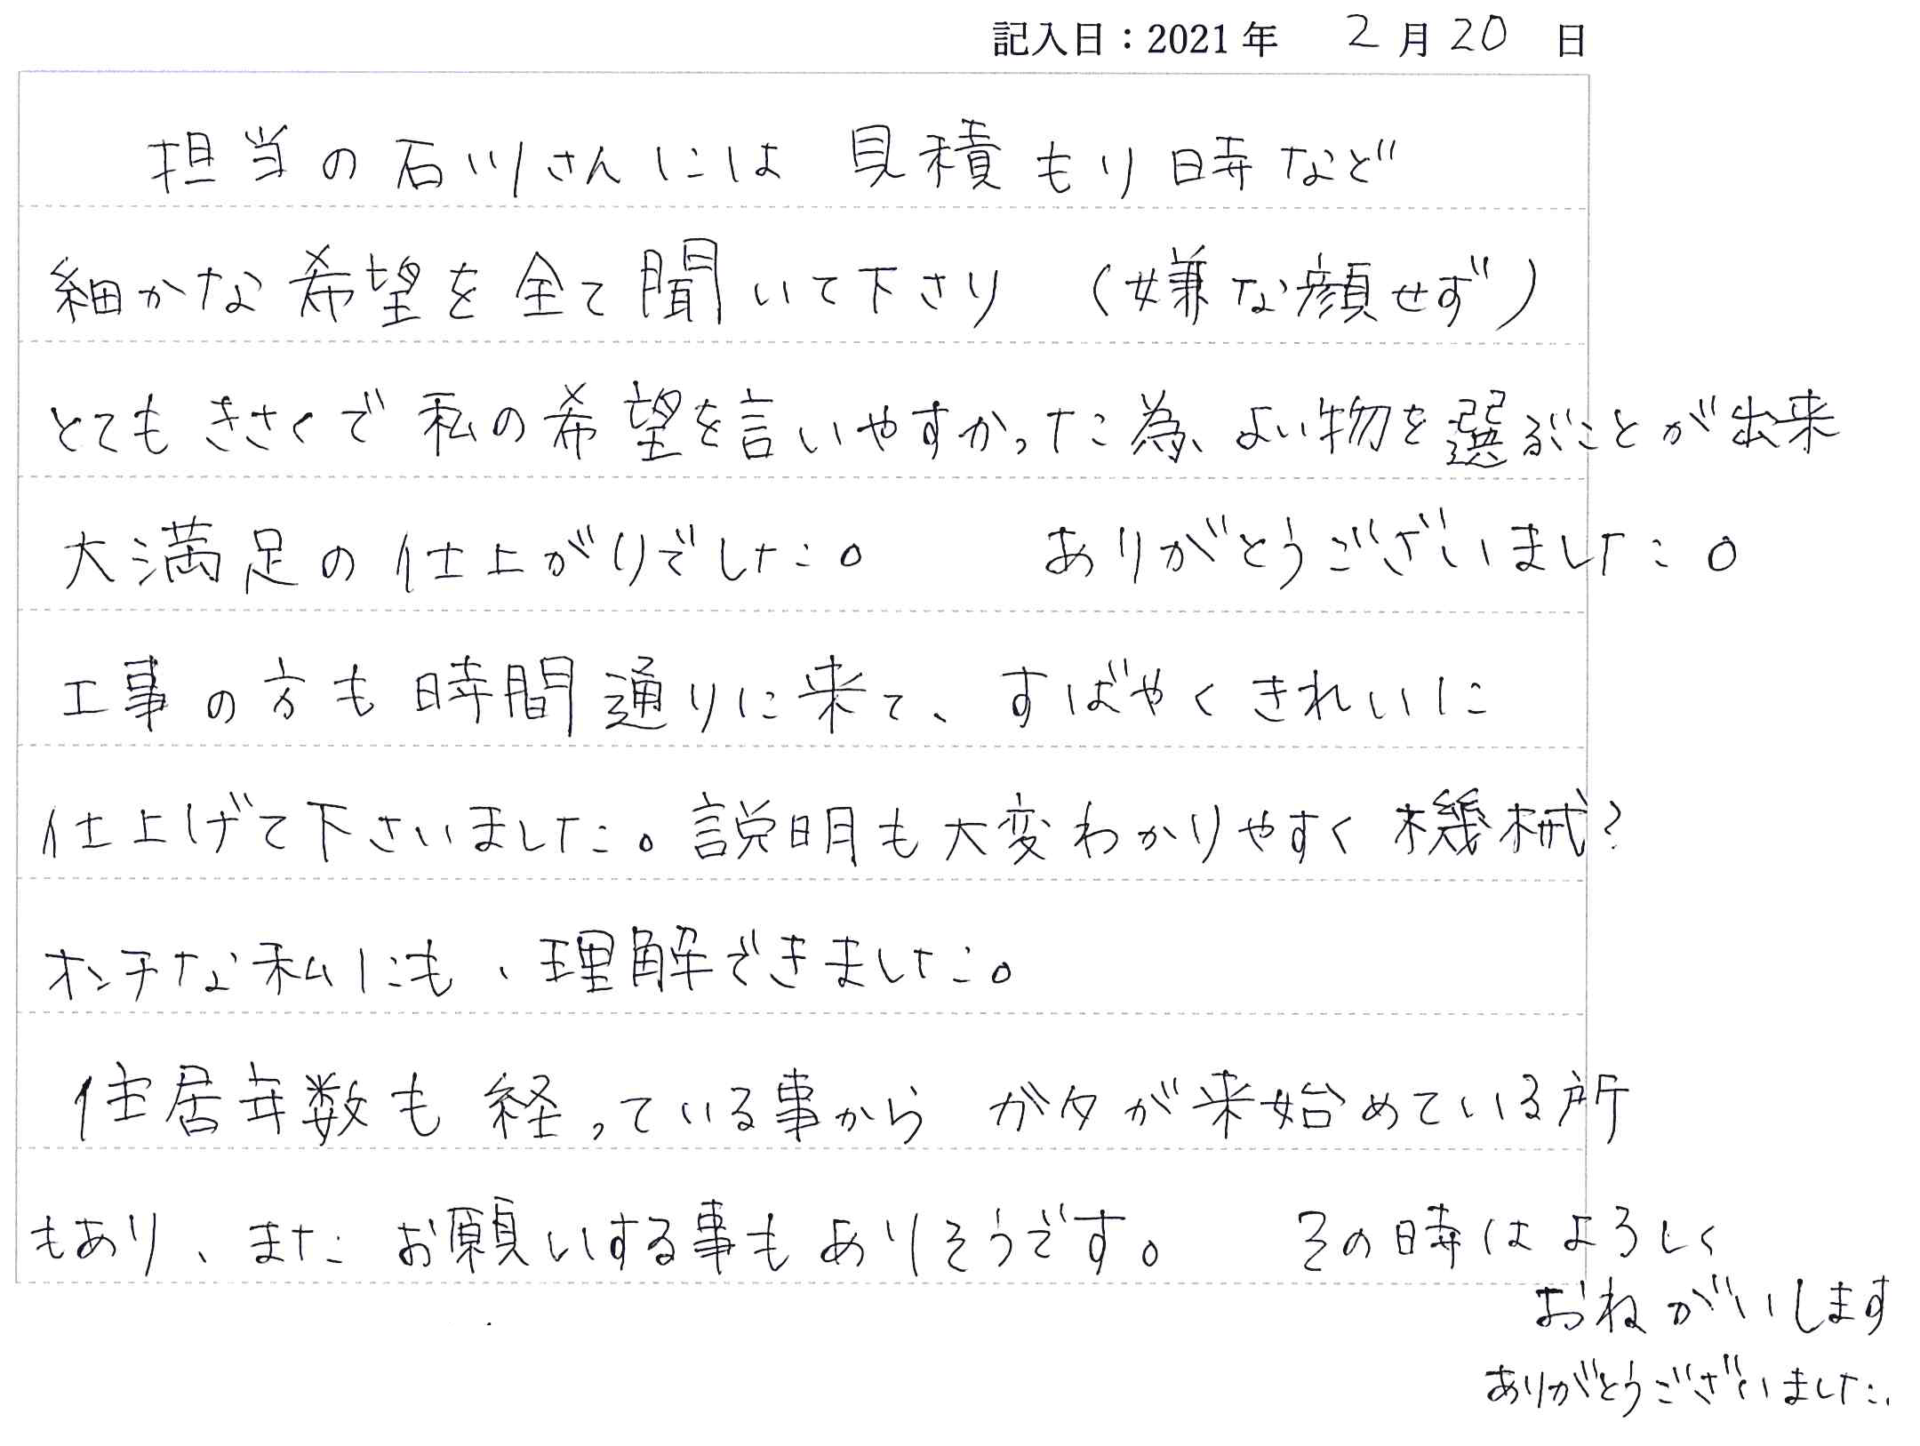 記入日：2021年 2月20日
担当の石川さんには 見積もり時など
細かな希望を全て聞いて下さり （嫌な顔せず）
とても きさくで 私の希望を言いやすかった為、よい物を選ぶことが出来
大満足の仕上がりでした。 ありがとうございました。
工事の方も時間通りに来て、すばやくきれいに
仕上げて下さいました。説明も大変わかりやすく機械?
オンチな私にも、理解できました。
住居年数も 経っている事から ガタが来始めている所
もあり、また お願いする事もありそうです。 その時はよろしく
おねがいします
ありがとうございました.